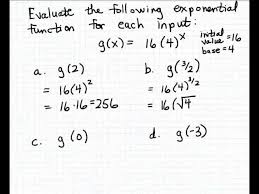 Evaluate the following exponential
function for each input:
g(x) = 16(4)^x
initial
value = 16
base = 4
a. g(2)
= 16(4)²
= 16·16 = 256
b. g(3/2)
= 16(4)^3/2
= 16(√4
c. g(0)
d. g(-3)